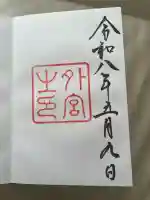 令和八年五月九日
外宮之印